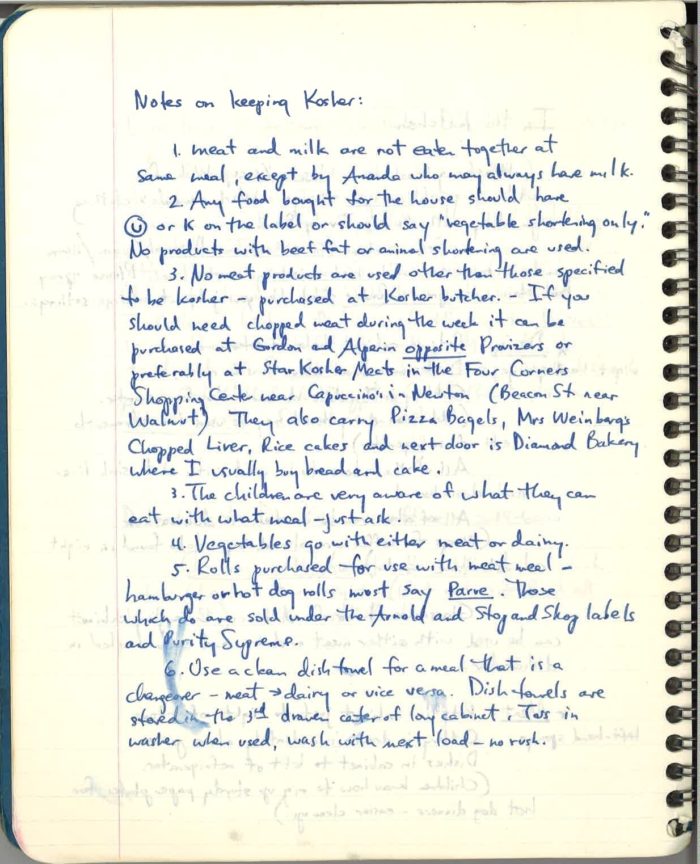 Notes on keeping Kosher:
1. meat and milk are not eaten together at
same meal except by Ananda who may always have milk.
2. Any food bought for the house should have
Ⓤ or K on the label or should say "vegetable shortening only."
No products with beef fat or animal shortening are used.
3. No meat products are used other than those specified
to be kosher - purchased at Kosher butcher. - If you
should need chopped meat during the week it can be
purchased at Gordon and Alperin opposite Provizers or
preferably at Star Kosher Meats in the Four Corners
Shopping Center near Capuccino's in Newton (Beacon St near
Walnut) They also carry Pizza Bagels, Mrs Weinberg's
Chopped Liver, Rice cakes and next door is Diamond Bakery
where I usually buy bread and cake.
3. The children are very aware of what they can
eat with what meal - just ask.
4. Vegetables go with either meat or dairy.
5. Rolls purchased for use with meat meal -
hamburger or hot dog rolls must say Parve. Those
which do are sold under the Arnold and Stop and Shop labels
and Purity Supreme.
6. Use a clean dish towel for a meal that is a
changeover - meat → dairy or vice versa. Dish towels are
stored in the 3rd drawer center of long cabinet. Toss in
washer when used, wash with next load - no rush.